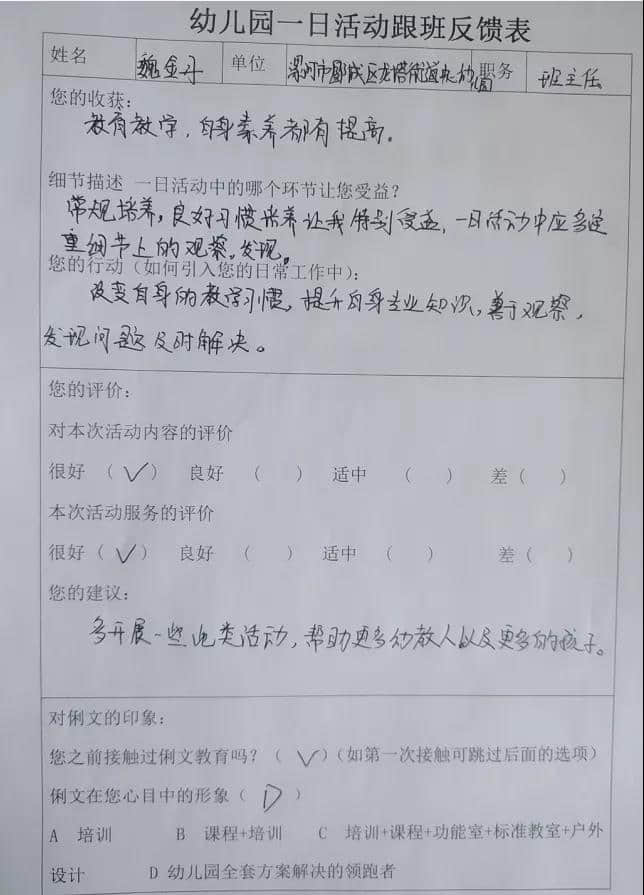 幼儿园一日活动跟班反馈表
姓名 魏金丹 单位 漯河市郾城区龙塔街道办幼儿园 职务 班主任
您的收获：
教育教学，自身素养都有提高。
细节描述 一日活动中的哪个环节让您受益？
常规培养，良好习惯培养让我特别受益，一日活动中应多注
重细节上的观察。发现。
您的行动（如何引入您的日常工作中）：
改变自身的教学习惯，提升自身专业知识，善于观察，
发现问题及时解决。
您的评价：
对本次活动内容的评价
很好 （ ✓ ） 良好 （ ） 适中 （ ） 差（ ）
本次活动服务的评价
很好（ ✓ ） 良好 （ ） 适中 （ ） 差（ ）
您的建议：
多开展一些此类活动，帮助更多幼教人以及更多的孩子。
对俐文的印象：
您之前接触过俐文教育吗？（ ✓ ）（如第一次接触可跳过后面的选项）
俐文在您心目中的形象（ D ）
A 培训 B 课程+培训 C 培训+课程+功能室+标准教室+户外
设计 D 幼儿园全套方案解决的领跑者